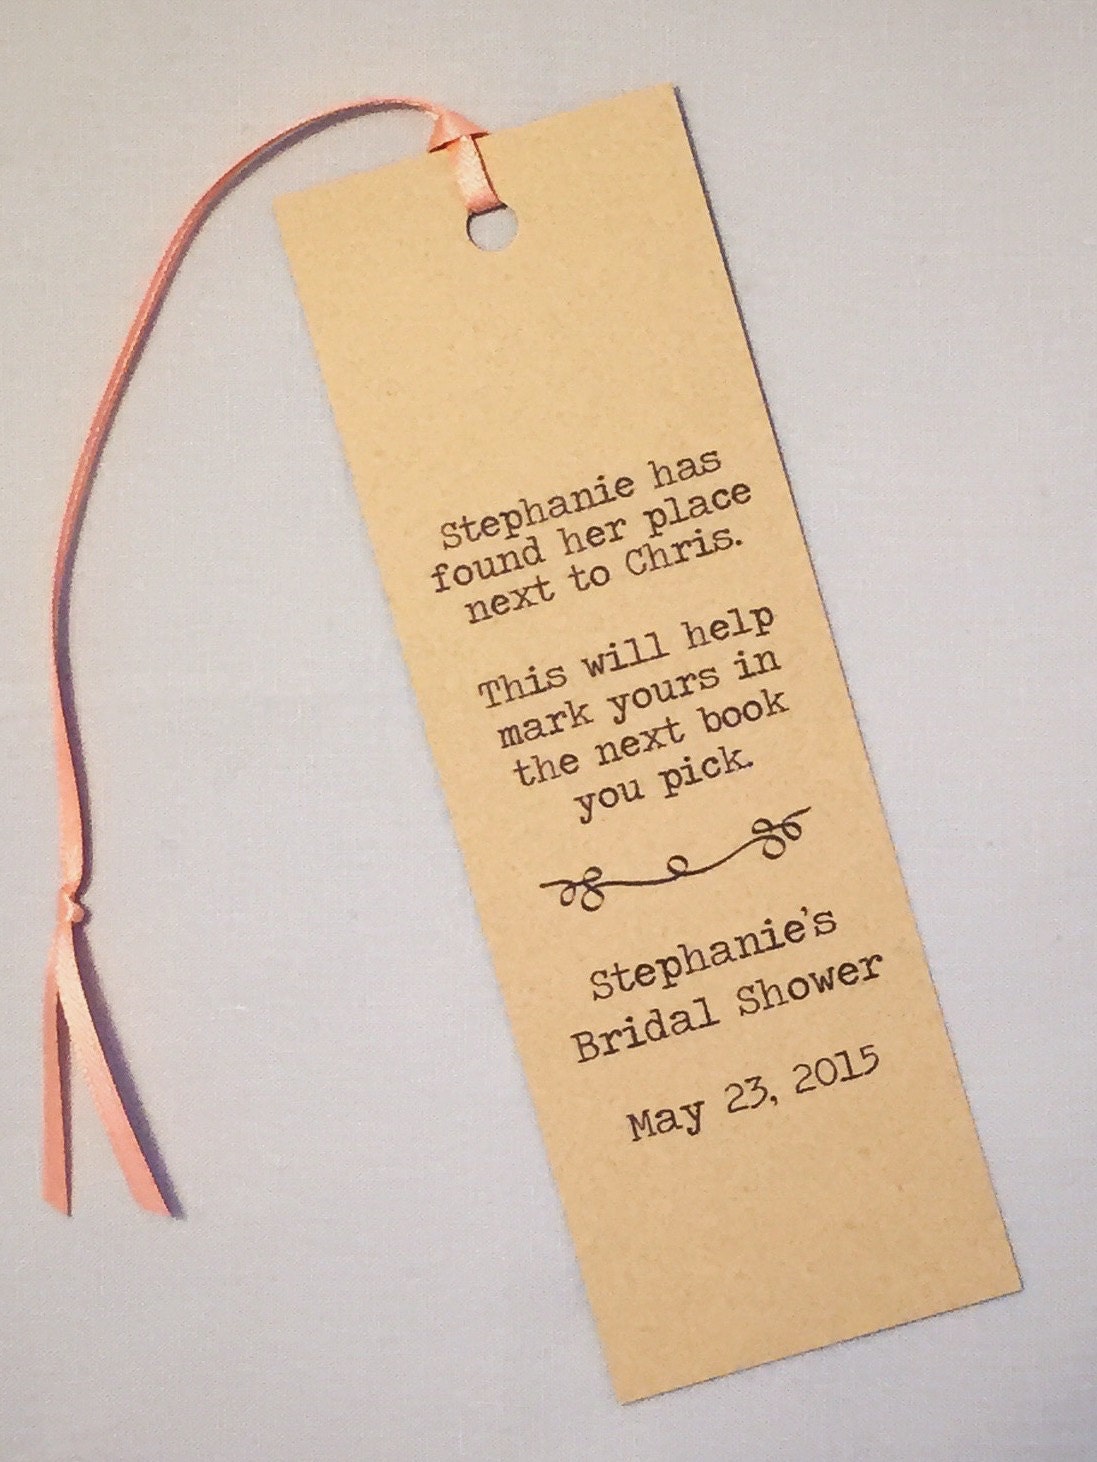 Stephanie has
found her place
next to Chris.
This will help
mark yours in
the next book
you pick.
Stephanie's
Bridal Shower
May 23, 2015